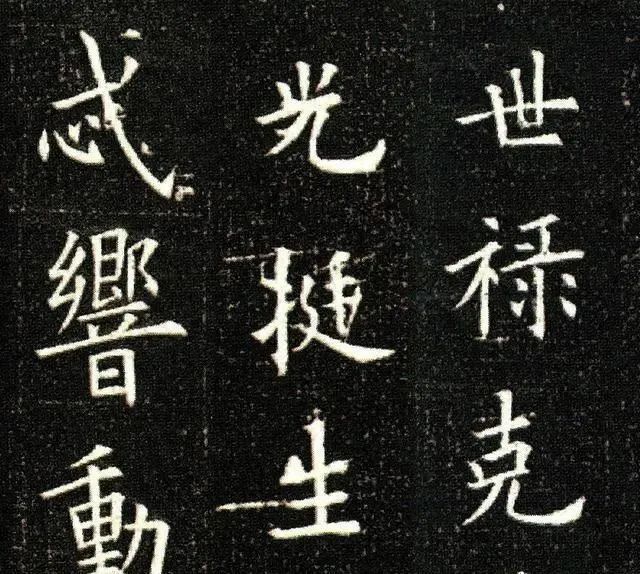 世禄克
光挺生
忒響動